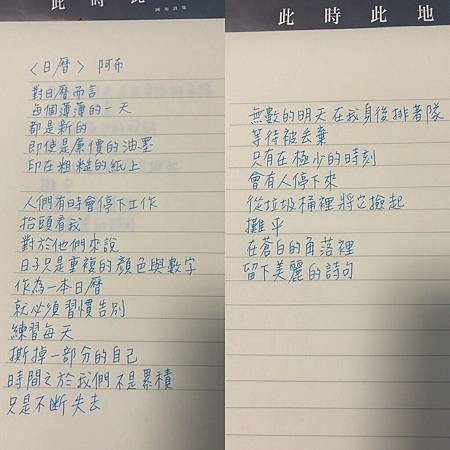 此時此地
〈日曆〉 阿布
對日曆而言
每個薄薄的一天
都是新的
即使是廉價的油墨
印在粗糙的紙上
人們有時會停下工作
抬頭看我
對於他們來說
日子只是重複的顏色與數字
作為一本日曆
就必須習慣告別
練習每天
撕掉一部分的自己
時間之於我們不是累積
只是不斷失去
此時此地
無數的明天在我身後排著隊
等待被丟棄
只有在極少的時刻
會有人停下來
從垃圾桶裡將它撿起
攤平
在蒼白的角落裡
留下美麗的詩句